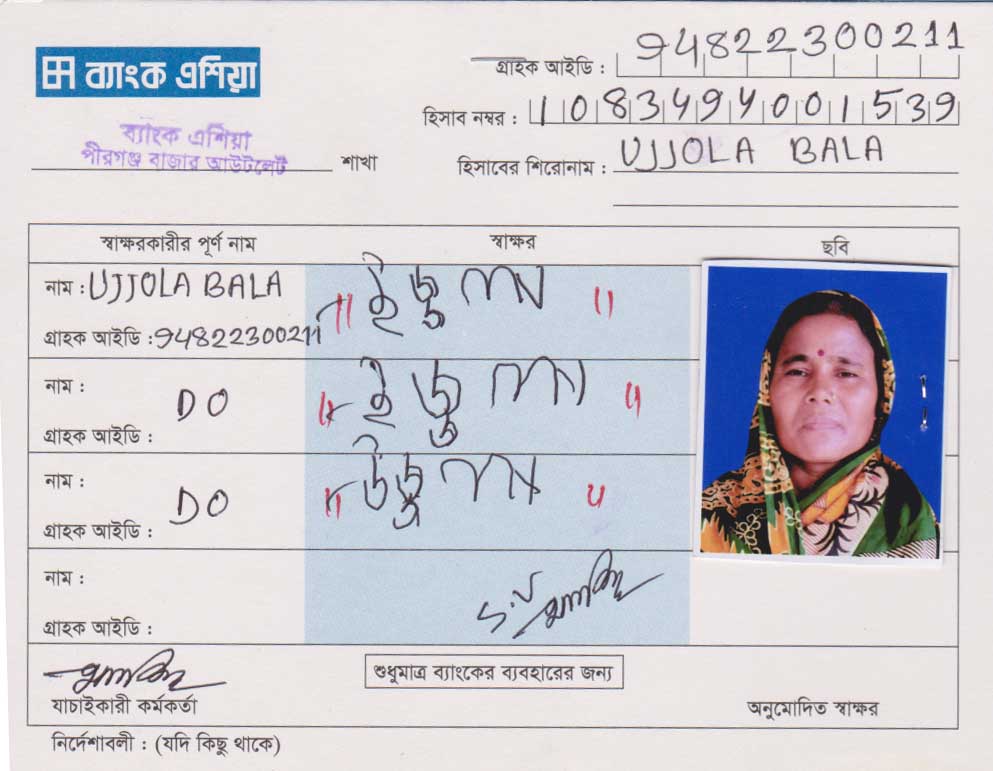 ব্যাংক এশিয়া
গ্রাহক আইডি : 94822300211
হিসাব নম্বর : 1083494001539
ব্যাংক এশিয়া
পীরগঞ্জ বাজার আউটলেট
শাখা
হিসাবের শিরোনাম : UJJOLA BALA
স্বাক্ষরকারীর পূর্ণ নাম স্বাক্ষর ছবি
নাম : UJJOLA BALA
গ্রাহক আইডি : 94822300211
নাম :
DO
গ্রাহক আইডি :
নাম :
DO
গ্রাহক আইডি :
নাম :
গ্রাহক আইডি :
শুধুমাত্র ব্যাংকের ব্যবহারের জন্য
যাচাইকারী কর্মকর্তা অনুমোদিত স্বাক্ষর
নির্দেশাবলী : (যদি কিছু থাকে)